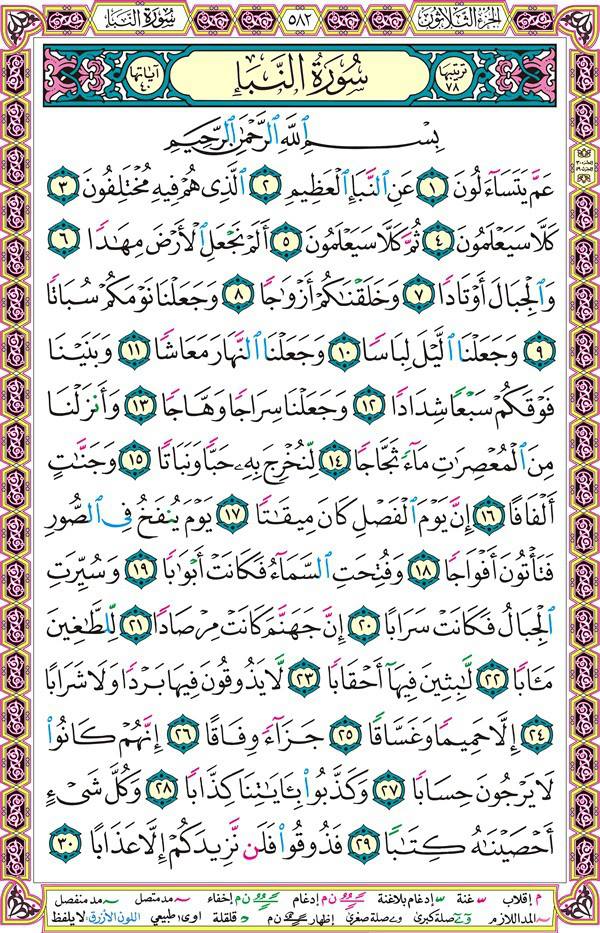 الجزء الثلاثون ٥٨٢ سورة النبإ
ترتيبها ٧٨ سُورَةُ النَّبَإِ آياتها ٤٠
بِسْمِ ٱللَّهِ ٱلرَّحْمَٰنِ ٱلرَّحِيمِ
عَمَّ يَتَسَآءَلُونَ ١ عَنِ ٱلنَّبَإِ ٱلْعَظِيمِ ٢ ٱلَّذِى هُمْ فِيهِ مُخْتَلِفُونَ ٣
كَلَّا سَيَعْلَمُونَ ٤ ثُمَّ كَلَّا سَيَعْلَمُونَ ٥ أَلَمْ نَجْعَلِ ٱلْأَرْضَ مِهَٰدًا ٦
وَٱلْجِبَالَ أَوْتَادًا ٧ وَخَلَقْنَٰكُمْ أَزْوَٰجًا ٨ وَجَعَلْنَا نَوْمَكُمْ سُبَاتًا
٩ وَجَعَلْنَا ٱلَّيْلَ لِبَاسًا ١٠ وَجَعَلْنَا ٱلنَّهَارَ مَعَاشًا ١١ وَبَنَيْنَا
فَوْقَكُمْ سَبْعًا شِدَادًا ١٢ وَجَعَلْنَا سِرَاجًا وَهَّاجًا ١٣ وَأَنزَلْنَا
مِنَ ٱلْمُعْصِرَٰتِ مَآءً ثَجَّاجًا ١٤ لِّنُخْرِجَ بِهِۦ حَبًّا وَنَبَاتًا ١٥ وَجَنَّٰتٍ
أَلْفَافًا ١٦ إِنَّ يَوْمَ ٱلْفَصْلِ كَانَ مِيقَٰتًا ١٧ يَوْمَ يُنفَخُ فِى ٱلصُّورِ
فَتَأْتُونَ أَفْوَاجًا ١٨ وَفُتِحَتِ ٱلسَّمَآءُ فَكَانَتْ أَبْوَٰبًا ١٩ وَسُيِّرَتِ
ٱلْجِبَالُ فَكَانَتْ سَرَابًا ٢٠ إِنَّ جَهَنَّمَ كَانَتْ مِرْصَادًا ٢١ لِّلطَّٰغِينَ
مَـَٔابًا ٢٢ لَّٰبِثِينَ فِيهَآ أَحْقَابًا ٢٣ لَّا يَذُوقُونَ فِيهَا بَرْدًا وَلَا شَرَابًا
٢٤ إِلَّا حَمِيمًا وَغَسَّاقًا ٢٥ جَزَآءً وِفَاقًا ٢٦ إِنَّهُمْ كَانُوا۟
لَا يَرْجُونَ حِسَابًا ٢٧ وَكَذَّبُوا۟ بِـَٔايَٰتِنَا كِذَّابًا ٢٨ وَكُلَّ شَىْءٍ
أَحْصَيْنَٰهُ كِتَٰبًا ٢٩ فَذُوقُوا۟ فَلَن نَّزِيدَكُمْ إِلَّا عَذَابًا ٣٠
م إقلاب غنة إدغام بلاغنة ن م إدغام ن م إخفاء مد متصل مد منفصل
المد اللازم صلة كبرى صلة صغرى إظهار ن م قلقلة اوى: طبيعي اللون الأزرق: لا يلفظ